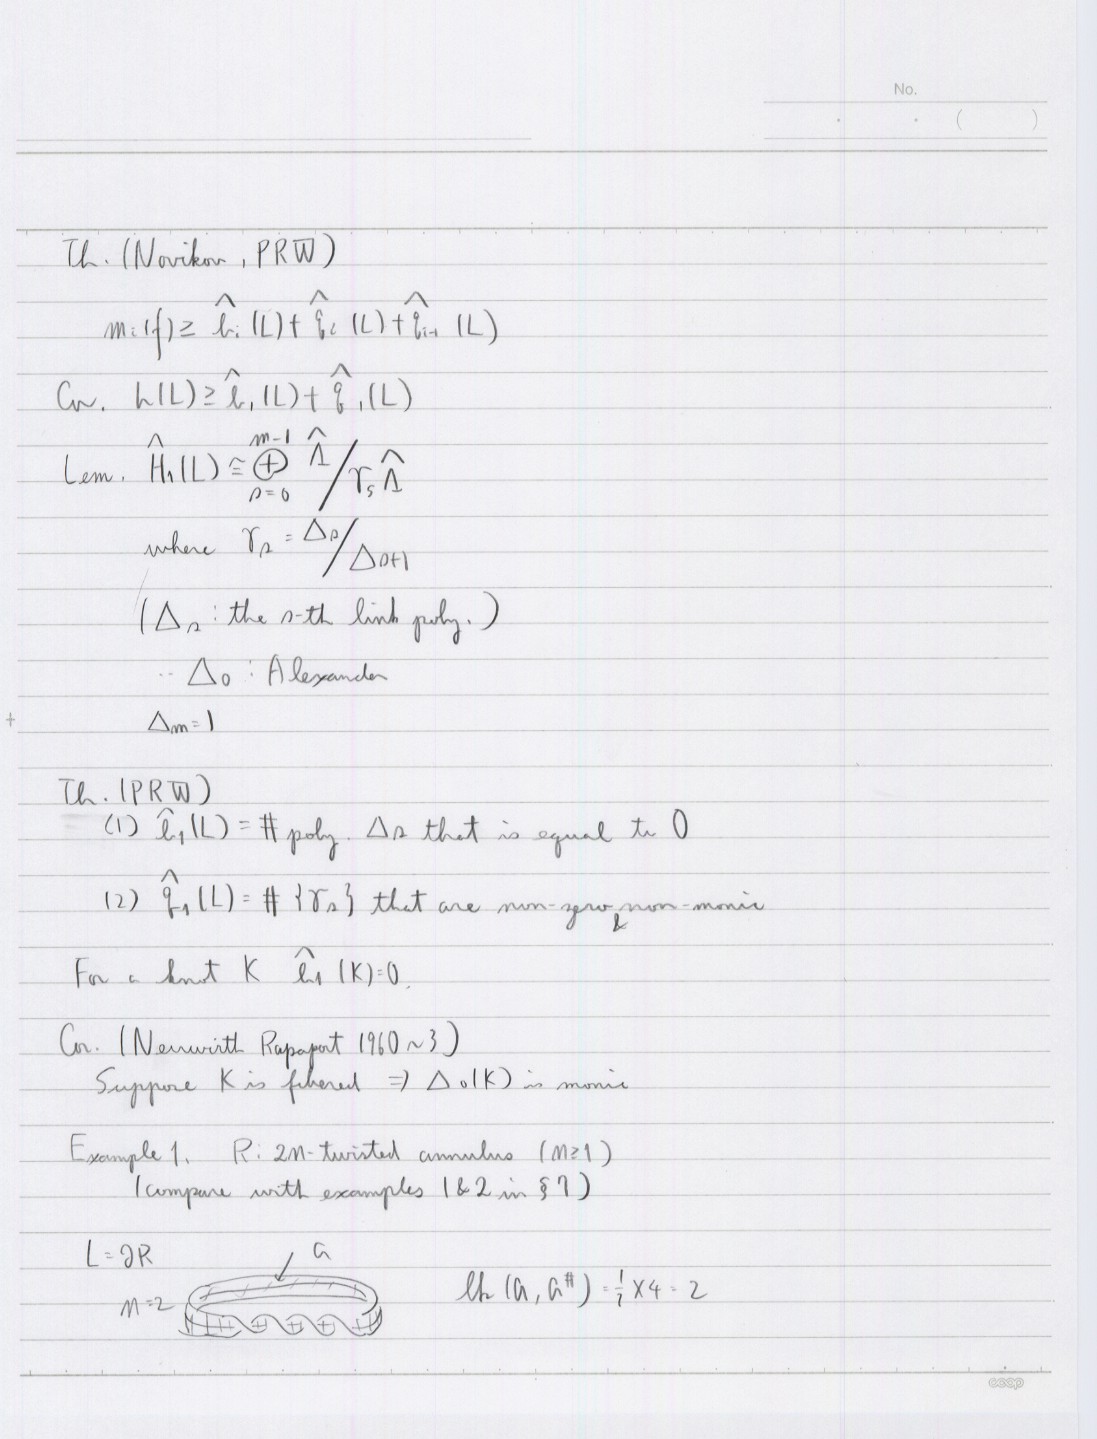 No.
· · ( )
Th. (Novikov, PRW)
m_i(f) ≥ \hat{b}_i(L) + \hat{q}_i(L) + \hat{q}_{i-1}(L)
Cor. h(L) ≥ \hat{b}_1(L) + \hat{q}_1(L)
Lem. \hat{H}_1(L) ≅ ⊕_{s=0}^{m-1} \hat{Λ} / γ_s \hat{Λ}
where γ_s = Δ_s / Δ_{s+1}
(Δ_s : the s-th link poly.)
·· Δ_0 : Alexander
Δ_m = 1
Th. (PRW)
(1) \hat{b}_1(L) = # poly. Δ_s that is equal to 0
(2) \hat{q}_1(L) = # {γ_s} that are non-zero & non-monic
For a knot K \hat{b}_1(K) = 0.
Cor. (Neuwirth Rapaport 1960~3)
Suppose K is fibered ⇒ Δ_0(K) is monic
Example 1. R: 2n-twisted annulus (n≥1)
(compare with examples 1&2 in §7)
L = ∂R
a
n=2
lk(a, a^#) = 1/2 × 4 = 2
coop